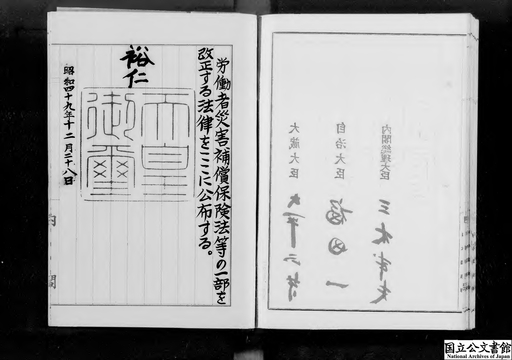 労働者災害補償保険法等の一部を
改正する法律をここに公布する。
裕仁
天皇
御璽
昭和四十九年十二月二十八日
内閣
内閣総理大臣 三木武夫
自治大臣 福田一
大蔵大臣 大平正芳
国立公文書館
National Archives of Japan